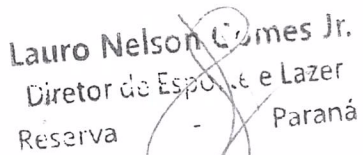 Lauro Nelson Gomes Jr.
Diretor de Esporte e Lazer
Reserva - Paraná